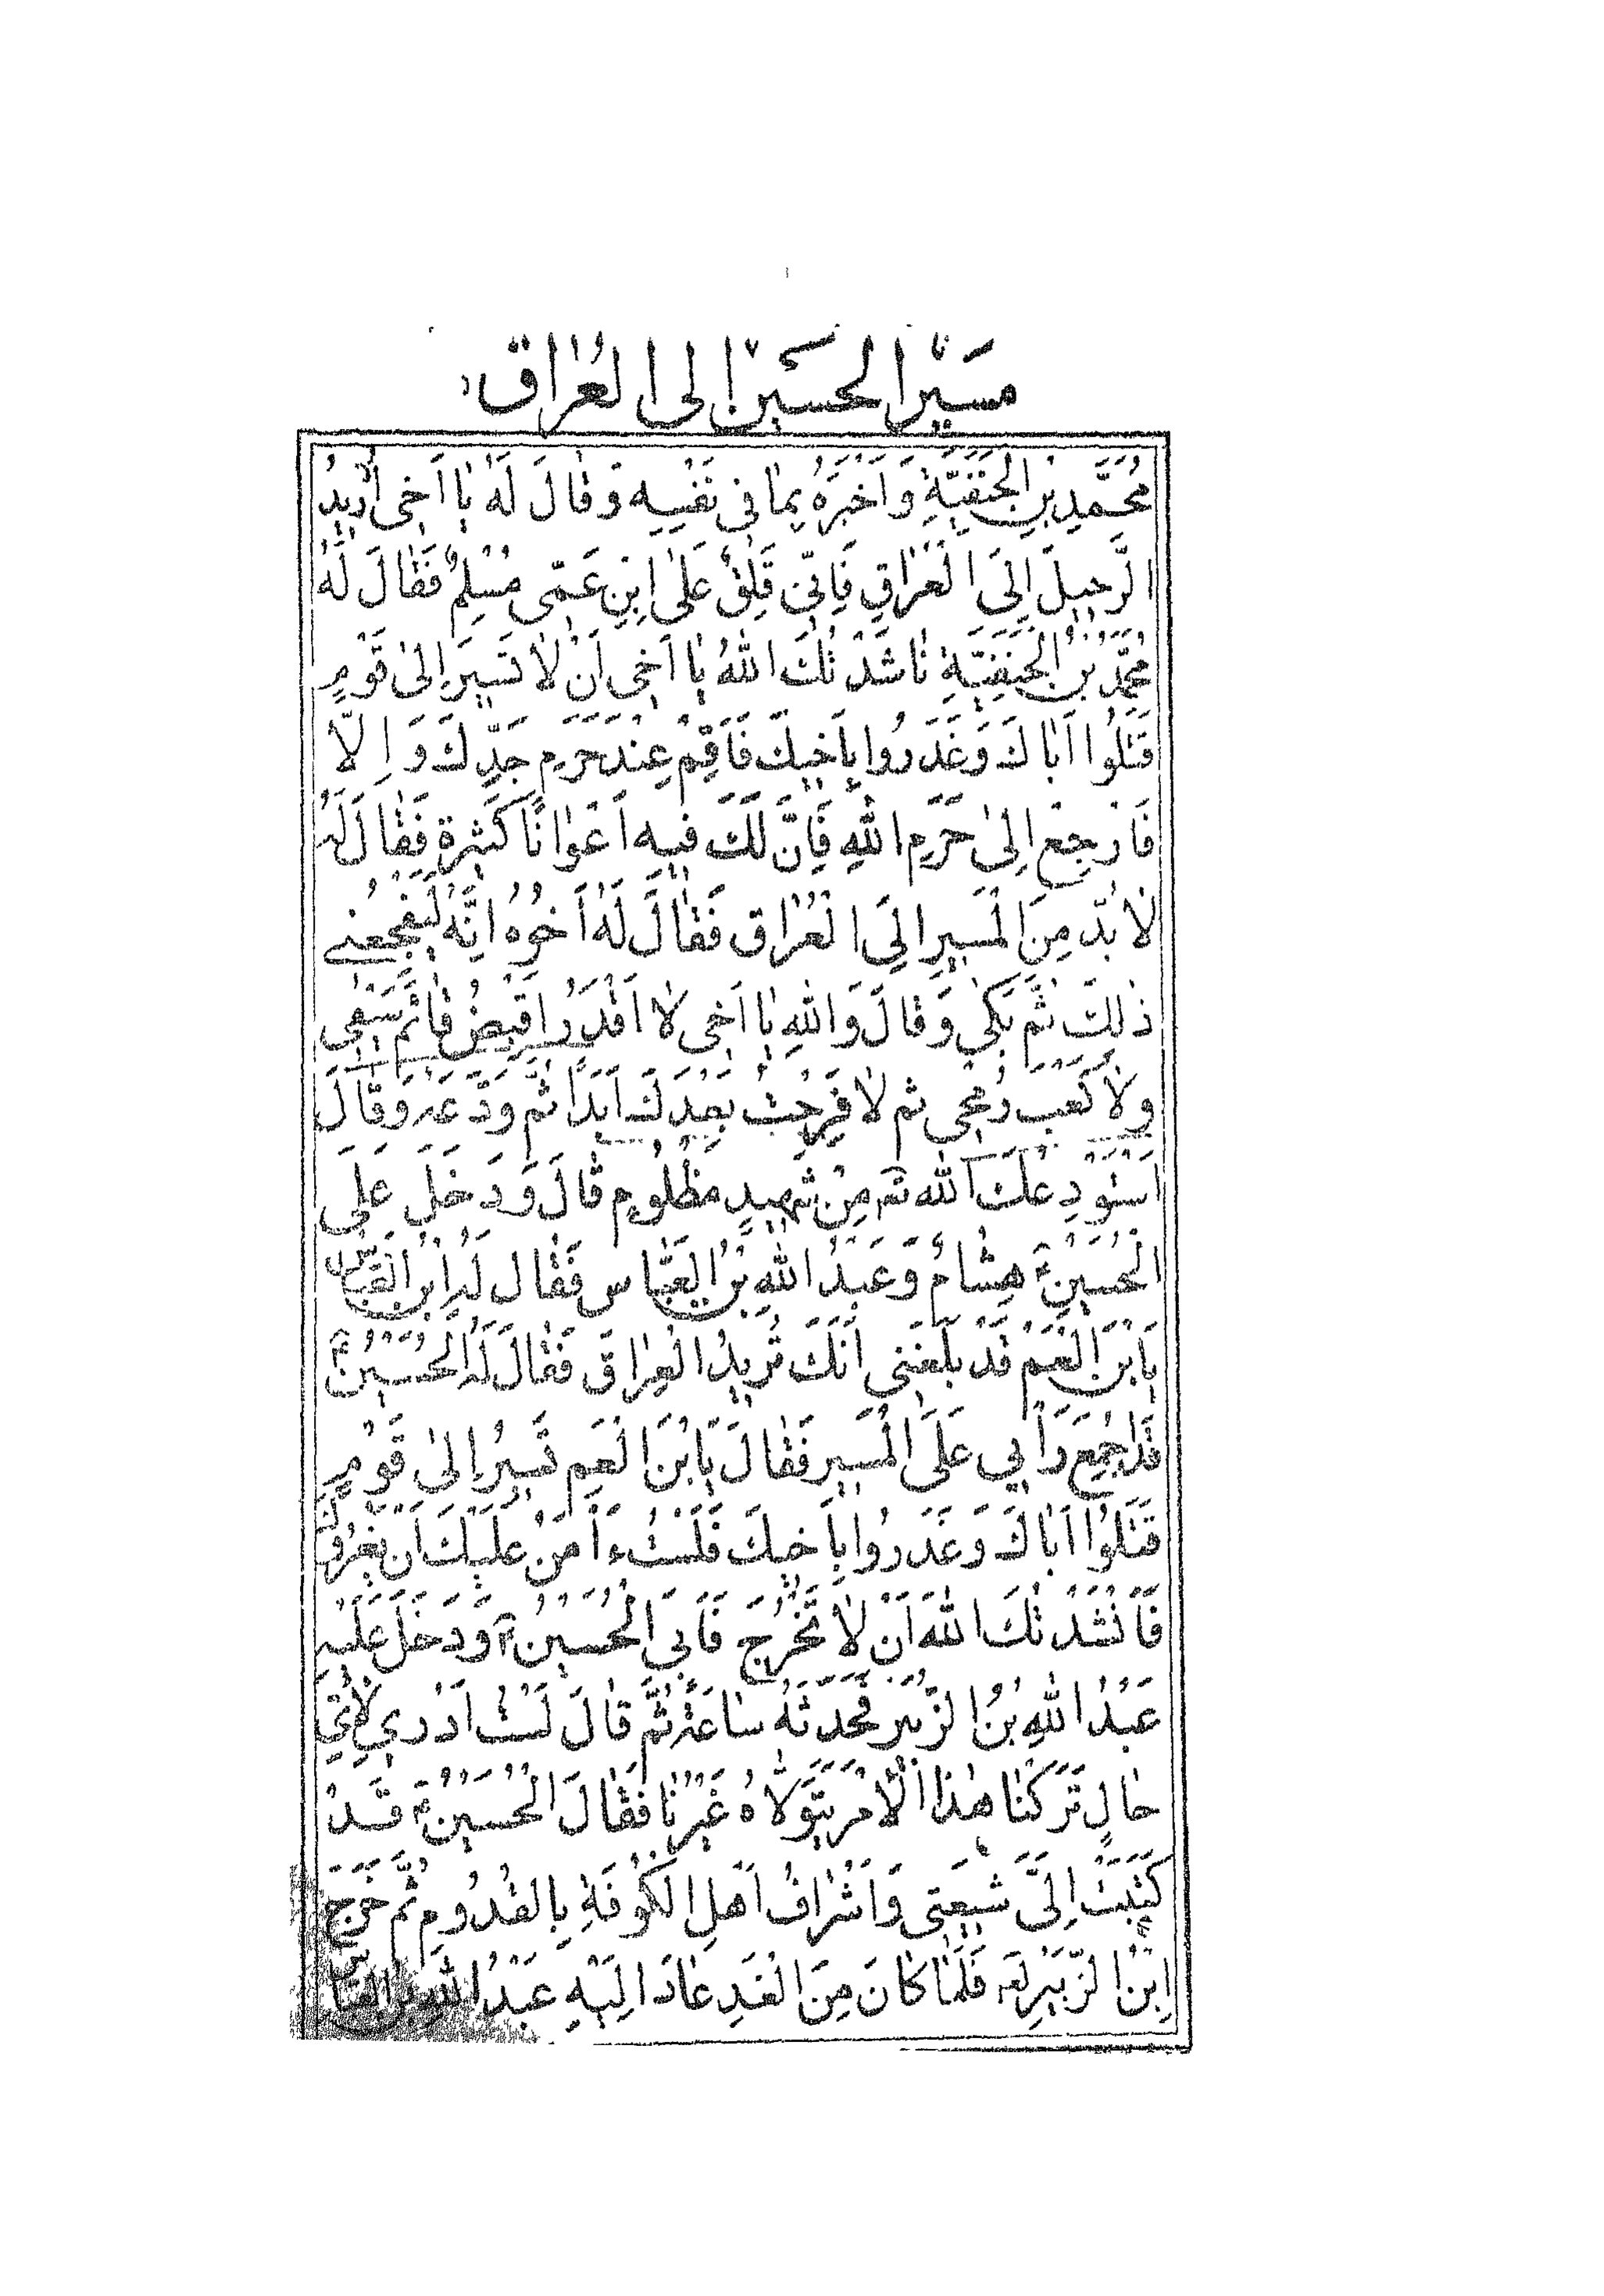 مَسَيْرُ الحُسَيْن إلى العُرٰاق
مُحَمَّدِ بْنِ الْحَنَفِيَّةِ وَاَخْبَرَهُ بِمٰا في نَفْسِهِ وَقٰالَ لَهُ يٰا اَخى اُرْيدُ
الرَّحيلَ اِلَى الْعَرٰاقِ فَاِنّى قَلِقٌ عَلىٰ اِبْنِ عَمّى مُسْلِمٌ فَقٰالَ لَهُ
مُحَمَّدُ بْنُ الْحَنَفِيَّةِ نٰاشَدْتُكَ اللهُ يٰا اَخى اَنْ لٰا تَسيرَ اِلىٰ قَوْمٍ
قَتَلُوا اَبٰاكَ وَغَدَرُوا بِاَخيكَ فَاَقِمْ عِنْدَ حَرَمِ جَدِّكَ وَاِلّا
فَارْجِعْ اِلىٰ حَرَمِ اللهِ فَاِنَّ لَكَ فيهِ اَعْوٰانًا كَثيرَة فَقٰالَ لَهُ
لٰا بُدّ مِنَ الْمَسيرِ اِلَى الْعُرٰاق فَقٰالَ لَهُ اَخُوُه اِنَّهُ لَيُفْجِعُني
ذٰلِكَ ثُمَّ بَكىٰ وَقٰالَ وَاللهِ يٰا اَخى لٰا اَقْدَرُ اَقْبِضُ قٰائِمَ سَيْفى
وَلٰا كَعْبَ رُمْحى ثم لٰا فَرِحْتُ بَعْدَكَ اَبَدًا ثُمَّ وَدَّعَهُ وَقٰالَ
اَسْتَوْدِعُكَ اللهَ مِنْ شَهيدٍ مَظْلُومٍ قٰالَ وَدَخَلَ عَلَى
الْحُسَيْنِ هِشٰامٌ وَعَبْدُ اللهِ بْنُ الْعَبّٰاس فَقٰالَ لَهُ اِبْنُ الْعَبّٰاسُ
يَا بْنَ الْعَمِّ قَدْ بَلَغَنى اَنَّكَ تُريدُ الْعِرٰاقَ فَقٰالَ لَهُ الْحُسَيْنُ
قَدْ اَجْمَعَ رَاْيي عَلَى الْمَسير فَقٰالَ يَا بْنَ الْعَمِ تَسيرُ اِلىٰ قَوْمٍ
قَتَلُوُا اَبٰاكَ وَغَدَرُوا بِاَخيكَ فَلَسْتُ ءَاْمَنُ عَلَيْكَ اَنْ يَغُرُّوكَ
فَاَنْشَدْتُكَ اللهَ اَنْ لٰا تَخْرُجَ فَاَبَى الْحُسَيْنُ وَدَخَلَ عَلَيْهِ
عَبْدُ اللهِ بْنُ الزُّبَيْر فَحَدَثَهُ سٰاعَةً ثُمَّ قٰالَ لَسْتُ اَدْري لِاَيِّ
حٰالٍ تَرَكْنٰا هٰذَا الْاَمْرَ يَتَوَلّاهُ غَيْرُنٰا فَقٰالَ الْحُسَيْنُ قَدْ
كَتَبَتْ اِلَىَّ شيعَتى وَاَشْرٰافُ اَهْلِ الْكُوفَةِ بِالْقُدُومِ ثُمَّ خَرَجَ
اِبْنُ الزُّبَيْرِ فَلَمّٰا كٰانَ مِنَ الْغَدِ عٰادَ اِلَيْهِ عَبْدُ اللهِ بْنُ الْعَبّٰاس